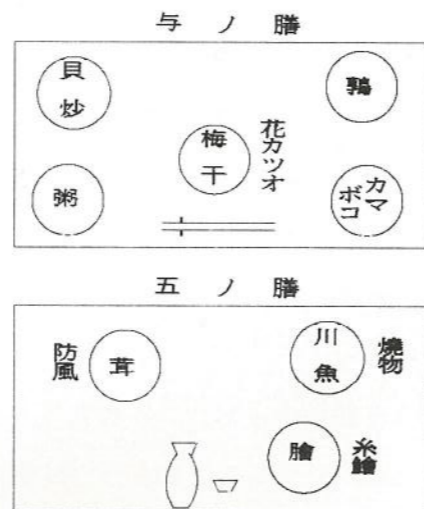 与ノ膳
貝炒
鶉
梅干
花カツオ
粥
カマ
ボコ
五ノ膳
防風
茸
川魚
燒物
膾
糸鱠